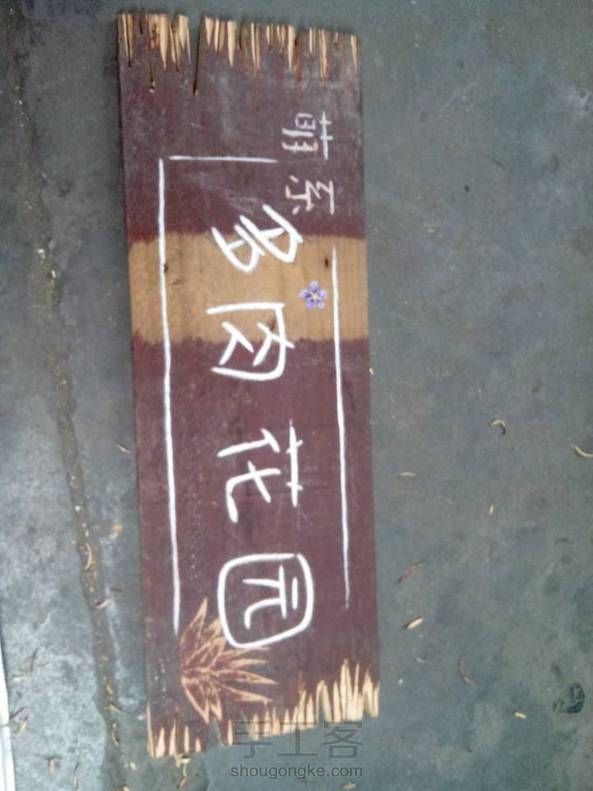 萌系
多肉花园
手工客
shougongke.com